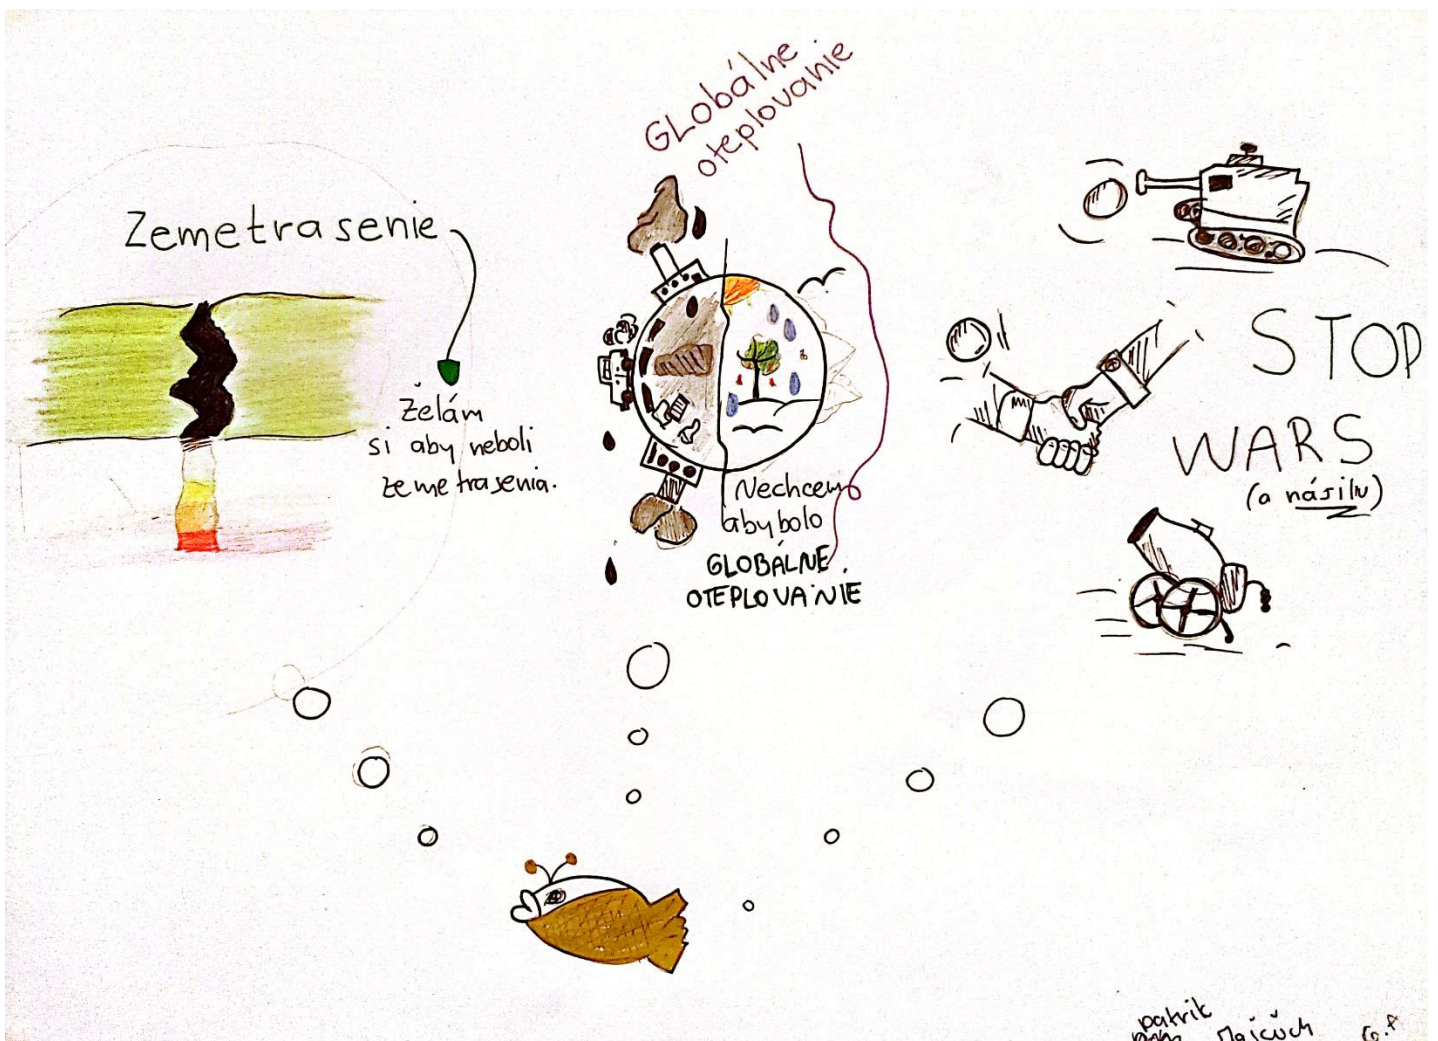 Zemetrasenie
Želám
si aby neboli
zemetrasenia.
GLobálne
oteplovanie
Nechcem
aby bolo
GLOBÁLNE
OTEPLOVANIE
STOP
WARS
(a násiliu)
patrik